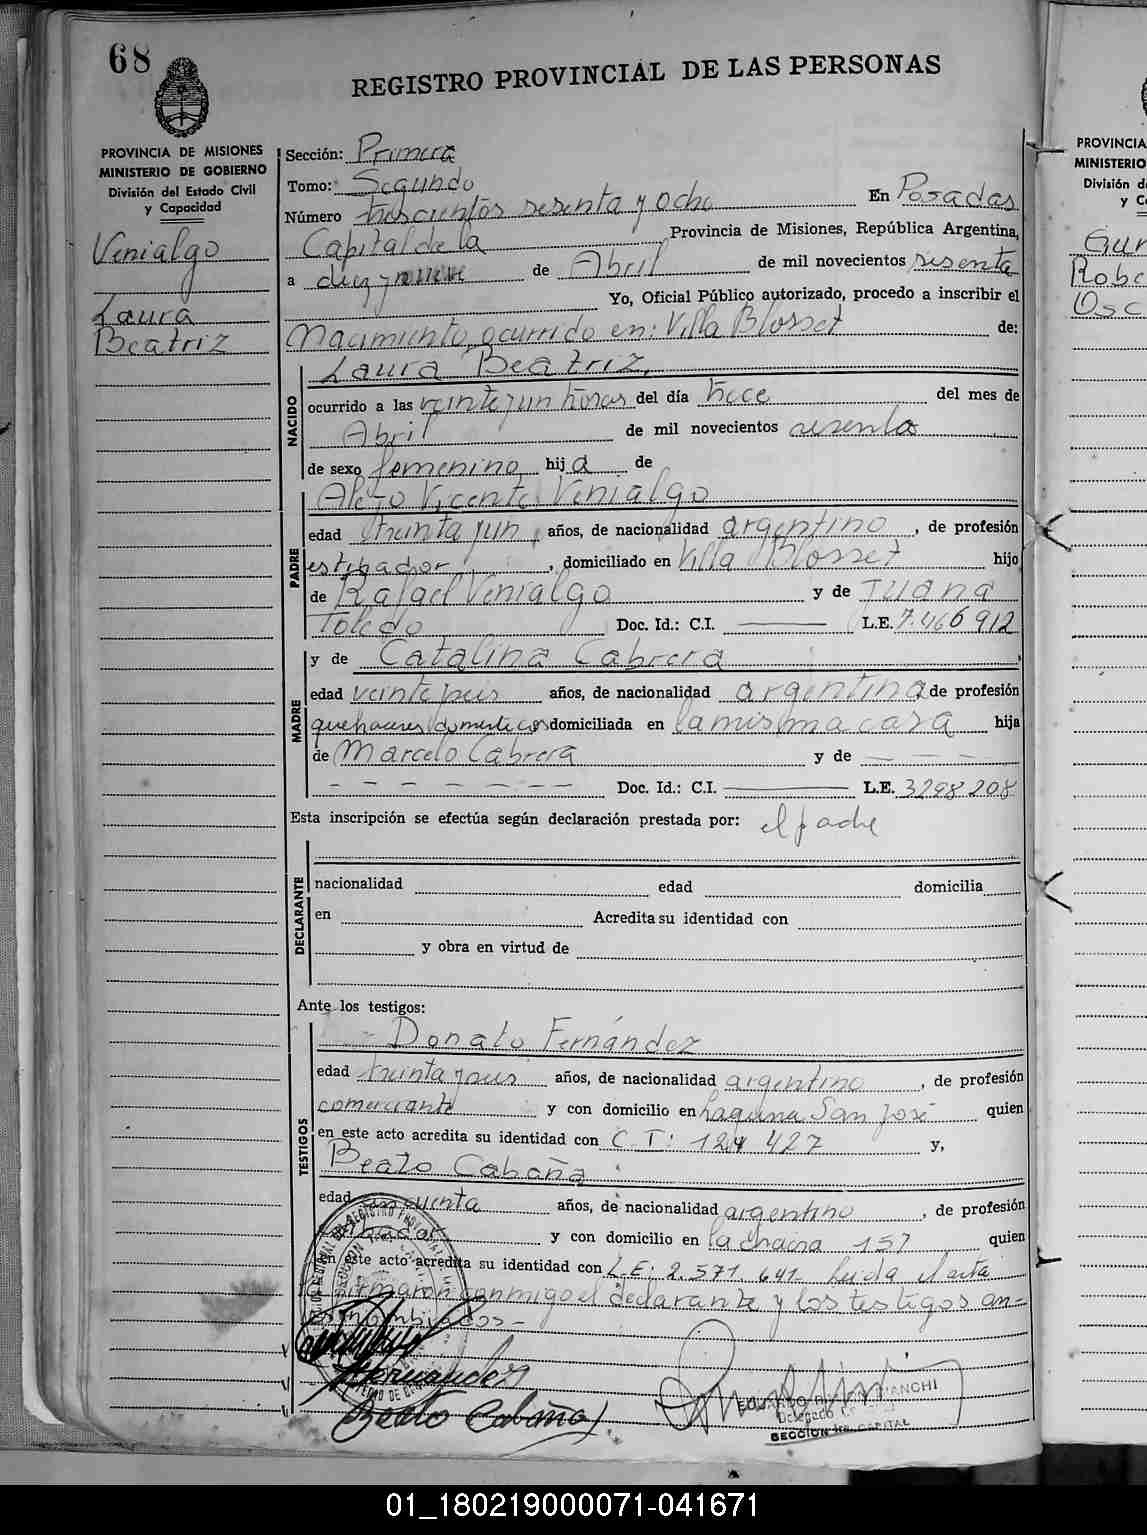 68
REGISTRO PROVINCIAL DE LAS PERSONAS
PROVINCIA DE MISIONES
MINISTERIO DE GOBIERNO
División del Estado Civil
y Capacidad
Venialgo
Laura
Beatriz
Sección: Primera
Tomo: Segundo
Número trescientos sesenta y ocho En Posadas
Capital de la Provincia de Misiones, República Argentina,
a diez y nueve de Abril de mil novecientos sesenta
Yo, Oficial Público autorizado, procedo a inscribir el
Nacimiento ocurrido en: Villa Blosset de:
NACIDO
Laura Beatriz,
ocurrido a las veinte y un horas del día trece del mes de
Abril de mil novecientos sesenta
de sexo femenino hija de
PADRE
Alejo Vicente Venialgo
edad treinta y un años, de nacionalidad argentino, de profesión
estibador, domiciliado en Villa Blosset hijo
de Rafael Venialgo y de Juana
Toledo Doc. Id.: C.I. L.E. 7.466912
MADRE
y de Catalina Cabrera
edad veinte y seis años, de nacionalidad argentina de profesión
quehaceres domesticos domiciliada en la misma casa hija
de Marcelo Cabrera y de - - - -
- - - - - - - Doc. Id.: C.I. L.E. 3298208
Esta inscripción se efectúa según declaración prestada por: el padre
DECLARANTE
nacionalidad edad domicilia
en Acredita su identidad con
y obra en virtud de
Ante los testigos:
TESTIGOS
Donato Fernández
edad treinta y seis años, de nacionalidad argentino, de profesión
comerciante y con domicilio en Laguna San José quien
en este acto acredita su identidad con C.I: 124 427 y,
Beato Cabaña
edad cincuenta años, de nacionalidad argentino, de profesión
y con domicilio en la chacra 157 quien
en este acto acredita su identidad con L.E: 2.571.641 Leida el acta
la firmaron conmigo el declarante y los testigos an-
tes nombrados -
Fernandez
Beato Cabaña
EDUARDO BIANCHI
Delegado
SECCION 1ra. CAPITAL
PROVINCIA
MINISTERIO
División d
y C
Robe
Osc
01_180219000071-041671